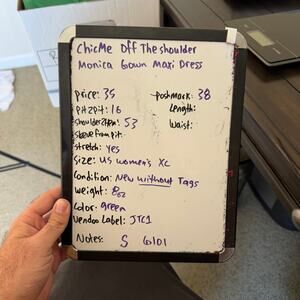 ChicMe Off The shoulder
Monica Gown Maxi Dress
price: 35
postmark: 38
pit2pit: 16
Length:
shoulder2hem: 53
Waist:
sleeve from pit:
stretch: yes
Size: US women's XL
Condition: New without Tags
weight: 8oz
Color: green
Vendoo Label: JTC1
Notes: S 6101